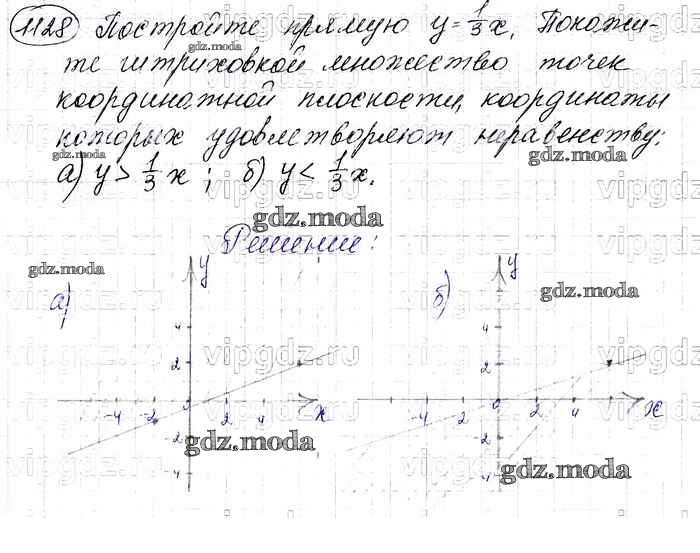 1128 Постройте прямую y = 1/3 x. Покажи-
те штриховкой множество точек
координатной плоскости, координаты
которых удовлетворяют неравенству:
а) y > 1/3 x ; б) y < 1/3 x.
Решение:
а) y
4
2
-4 -2 0 2 4 x
-2
-4
б) y
4
2
-4 -2 0 2 4 x
-2
-4
gdz.moda
gdz.moda
gdz.moda
gdz.moda
gdz.moda
gdz.moda
gdz.moda
vipgdz.ru
vipgdz.ru
vipgdz.ru
vipgdz.ru